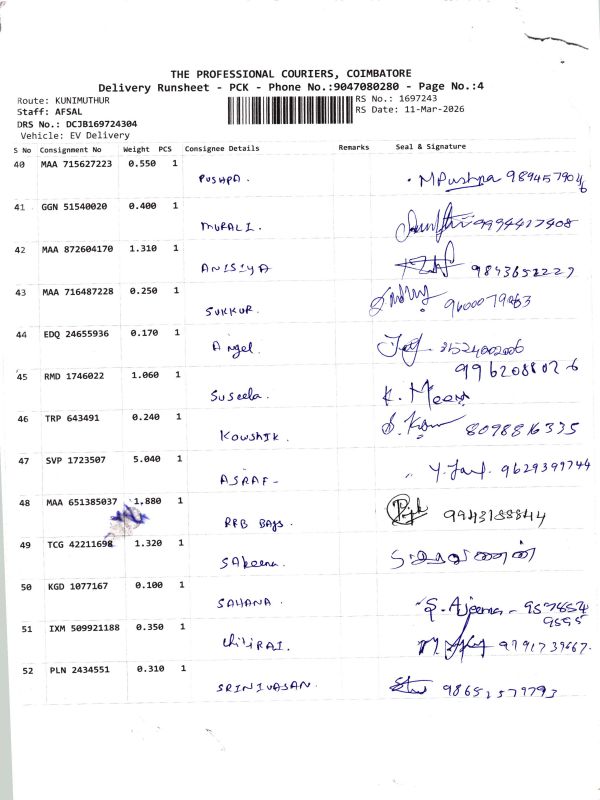 THE PROFESSIONAL COURIERS, COIMBATORE
Delivery Runsheet - PCK - Phone No.:9047080280 - Page No.:4
Route: KUNIMUTHUR
RS No.: 1697243
Staff: AFSAL
RS Date: 11-Mar-2026
DRS No.: DCJB169724304
Vehicle: EV Delivery
S No Consignment No Weight PCS Consignee Details Remarks Seal & Signature
40 MAA 715627223 0.550 1
PUSHPA. M Pushpa
41 GGN 51540020 0.400 1
MURALI. 9994417408
42 MAA 872604170 1.310 1
ANISIYA
43 MAA 716487228 0.250 1
SUKKUR.
44 EDQ 24655936 0.170 1
Angel.
45 RMD 1746022 1.060 1
Suseela. K. Meena
46 TRP 643491 0.240 1
Kowshik. 8098816335
47 SVP 1723507 5.040 1
ASRAF- 9629399744
48 MAA 651385037 1.880 1
RRB Bags. 9943188844
49 TCG 42211698 1.320 1
SAkeena.
50 KGD 1077167 0.100 1
SAHANA. S. Ajeema-
51 IXM 509921188 0.350 1
ChitiRAI. 9791739667.
52 PLN 2434551 0.310 1
SRINIVASAN.